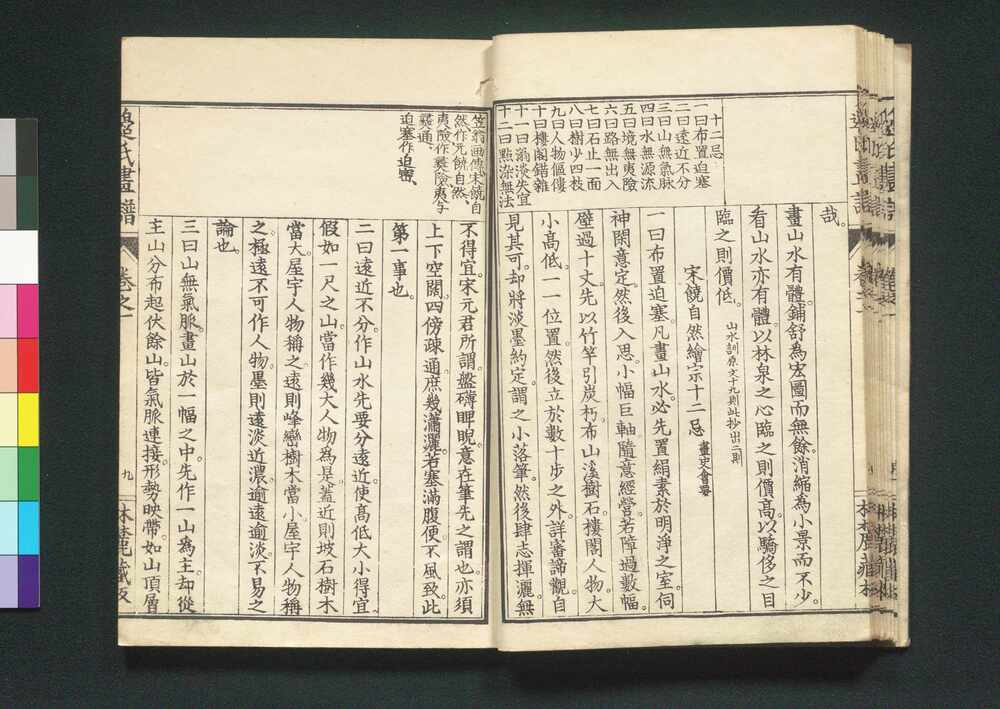 十二忌
一曰布置迫塞
二曰遠近不分
三曰山無氣脉
四曰水無源流
五曰境無夷險
六曰路無出入
七曰石止一面
八曰樹少四枝
九曰人物傴僂
十曰樓閣錯雜
十一曰滃淡失宜
十二曰點染無法
哉。
畫山水有體。鋪舒為宏圖而無餘。消縮為小景而不少。
看山水亦有體。以林泉之心臨之則價高。以驕侈之目
臨之則價低。 山水訓原文十九則此抄出二則
宋饒自然繪宗十二忌 畫史會要
一曰布置迫塞。凡畫山水。必先置絹素於明淨之室。伺
神閑意定。然後入思。小幅巨軸隨意經營。若障過數幅。
壁過十丈。先以竹竿引炭朽。布山溪樹石。樓閣人物。大
小高低。一一位置。然後立於數十步之外。詳審諦觀。自
見其可。却將淡墨約定。謂之小落筆。然後肆志揮灑。無
笠翁画傳宋饒自
然作元饒自然
夷險作
通
迫塞作迫密
不得宜。宋元君所謂。盤礴睥睨。意在筆先之謂也。亦須
上下空闊。四傍疎通。庶幾瀟灑。若塞滿腹。便不風致。此
第一事也。
二曰遠近不分。作山水先要分遠近。使高低大小得宜。
假如一尺之山。當作幾大人物為是。蓋近則坡石樹木
當大。屋宇人物稱之。遠則峰巒樹木當小。屋宇人物稱
之。極遠不可作人物。墨則遠淡近濃。逾遠逾淡。不易之
論也。
三曰山無氣脈。畫山於一幅之中。先作一山為主。却從
主山分布起伏。餘山皆氣脈連接。形勢映帶。如山頂層
氏畫譜
卷之一
九